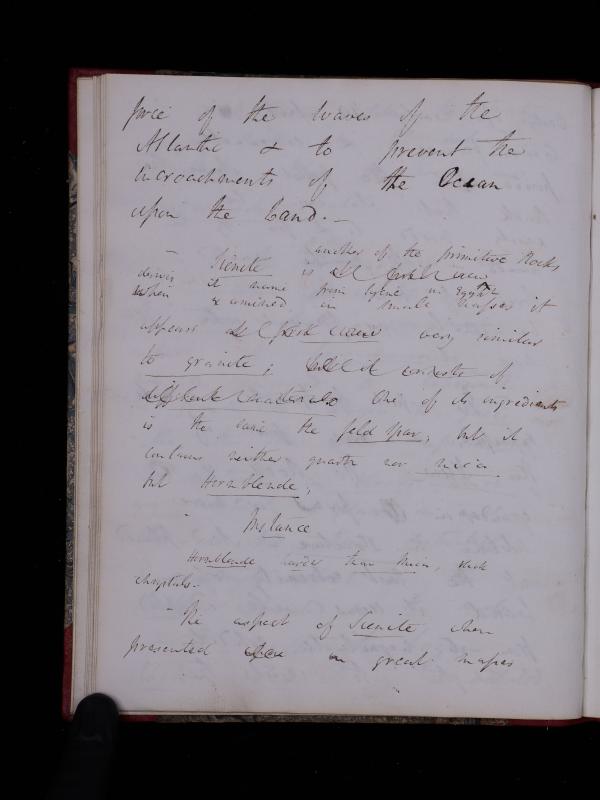 force of the waves of the
Atlantic & to prevent the
incroachments of the Ocean
upon the Land. —
another of the primitive Rocks
Sienite is
derives it name from Syene in Egypt
When examined in small masses it
appears at first view very similar
to granite; but it consists of
different materials One of its ingredients
is the same the feld spar, but it
contains neither quartz nor mica
but Hornblende,
Instance
Hornblende harder than Mica,
chrystals.
The aspect of Sienite when
presented in great masses